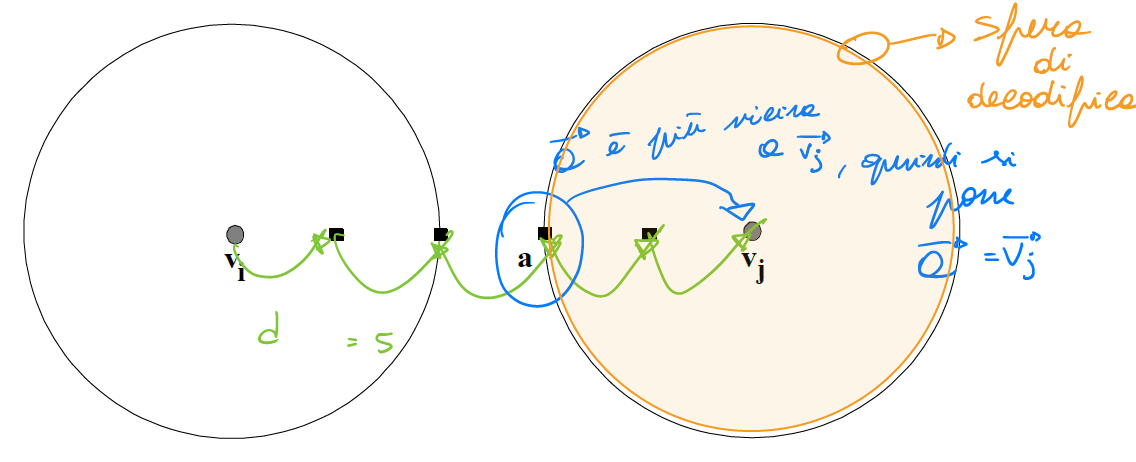 sfera
di
decodifica
a⃗ è più vicino
a v⃗j, quindi si
pone
a⃗ = v⃗j
vi
a
vj
d = 5